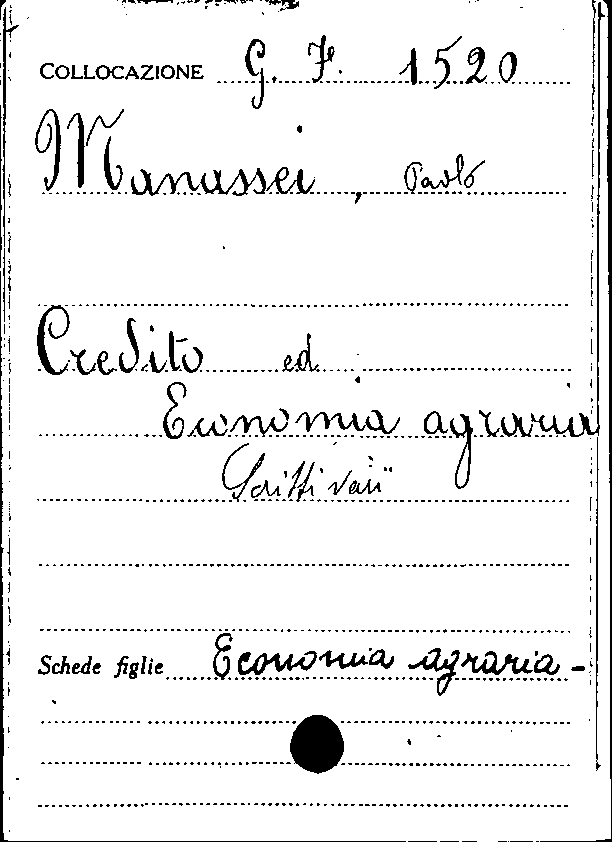 COLLOCAZIONE G. F. 1520
Manassei, Paolo
Credito ed
Economia agraria
Scritti varii
Schede figlie Economia agraria -